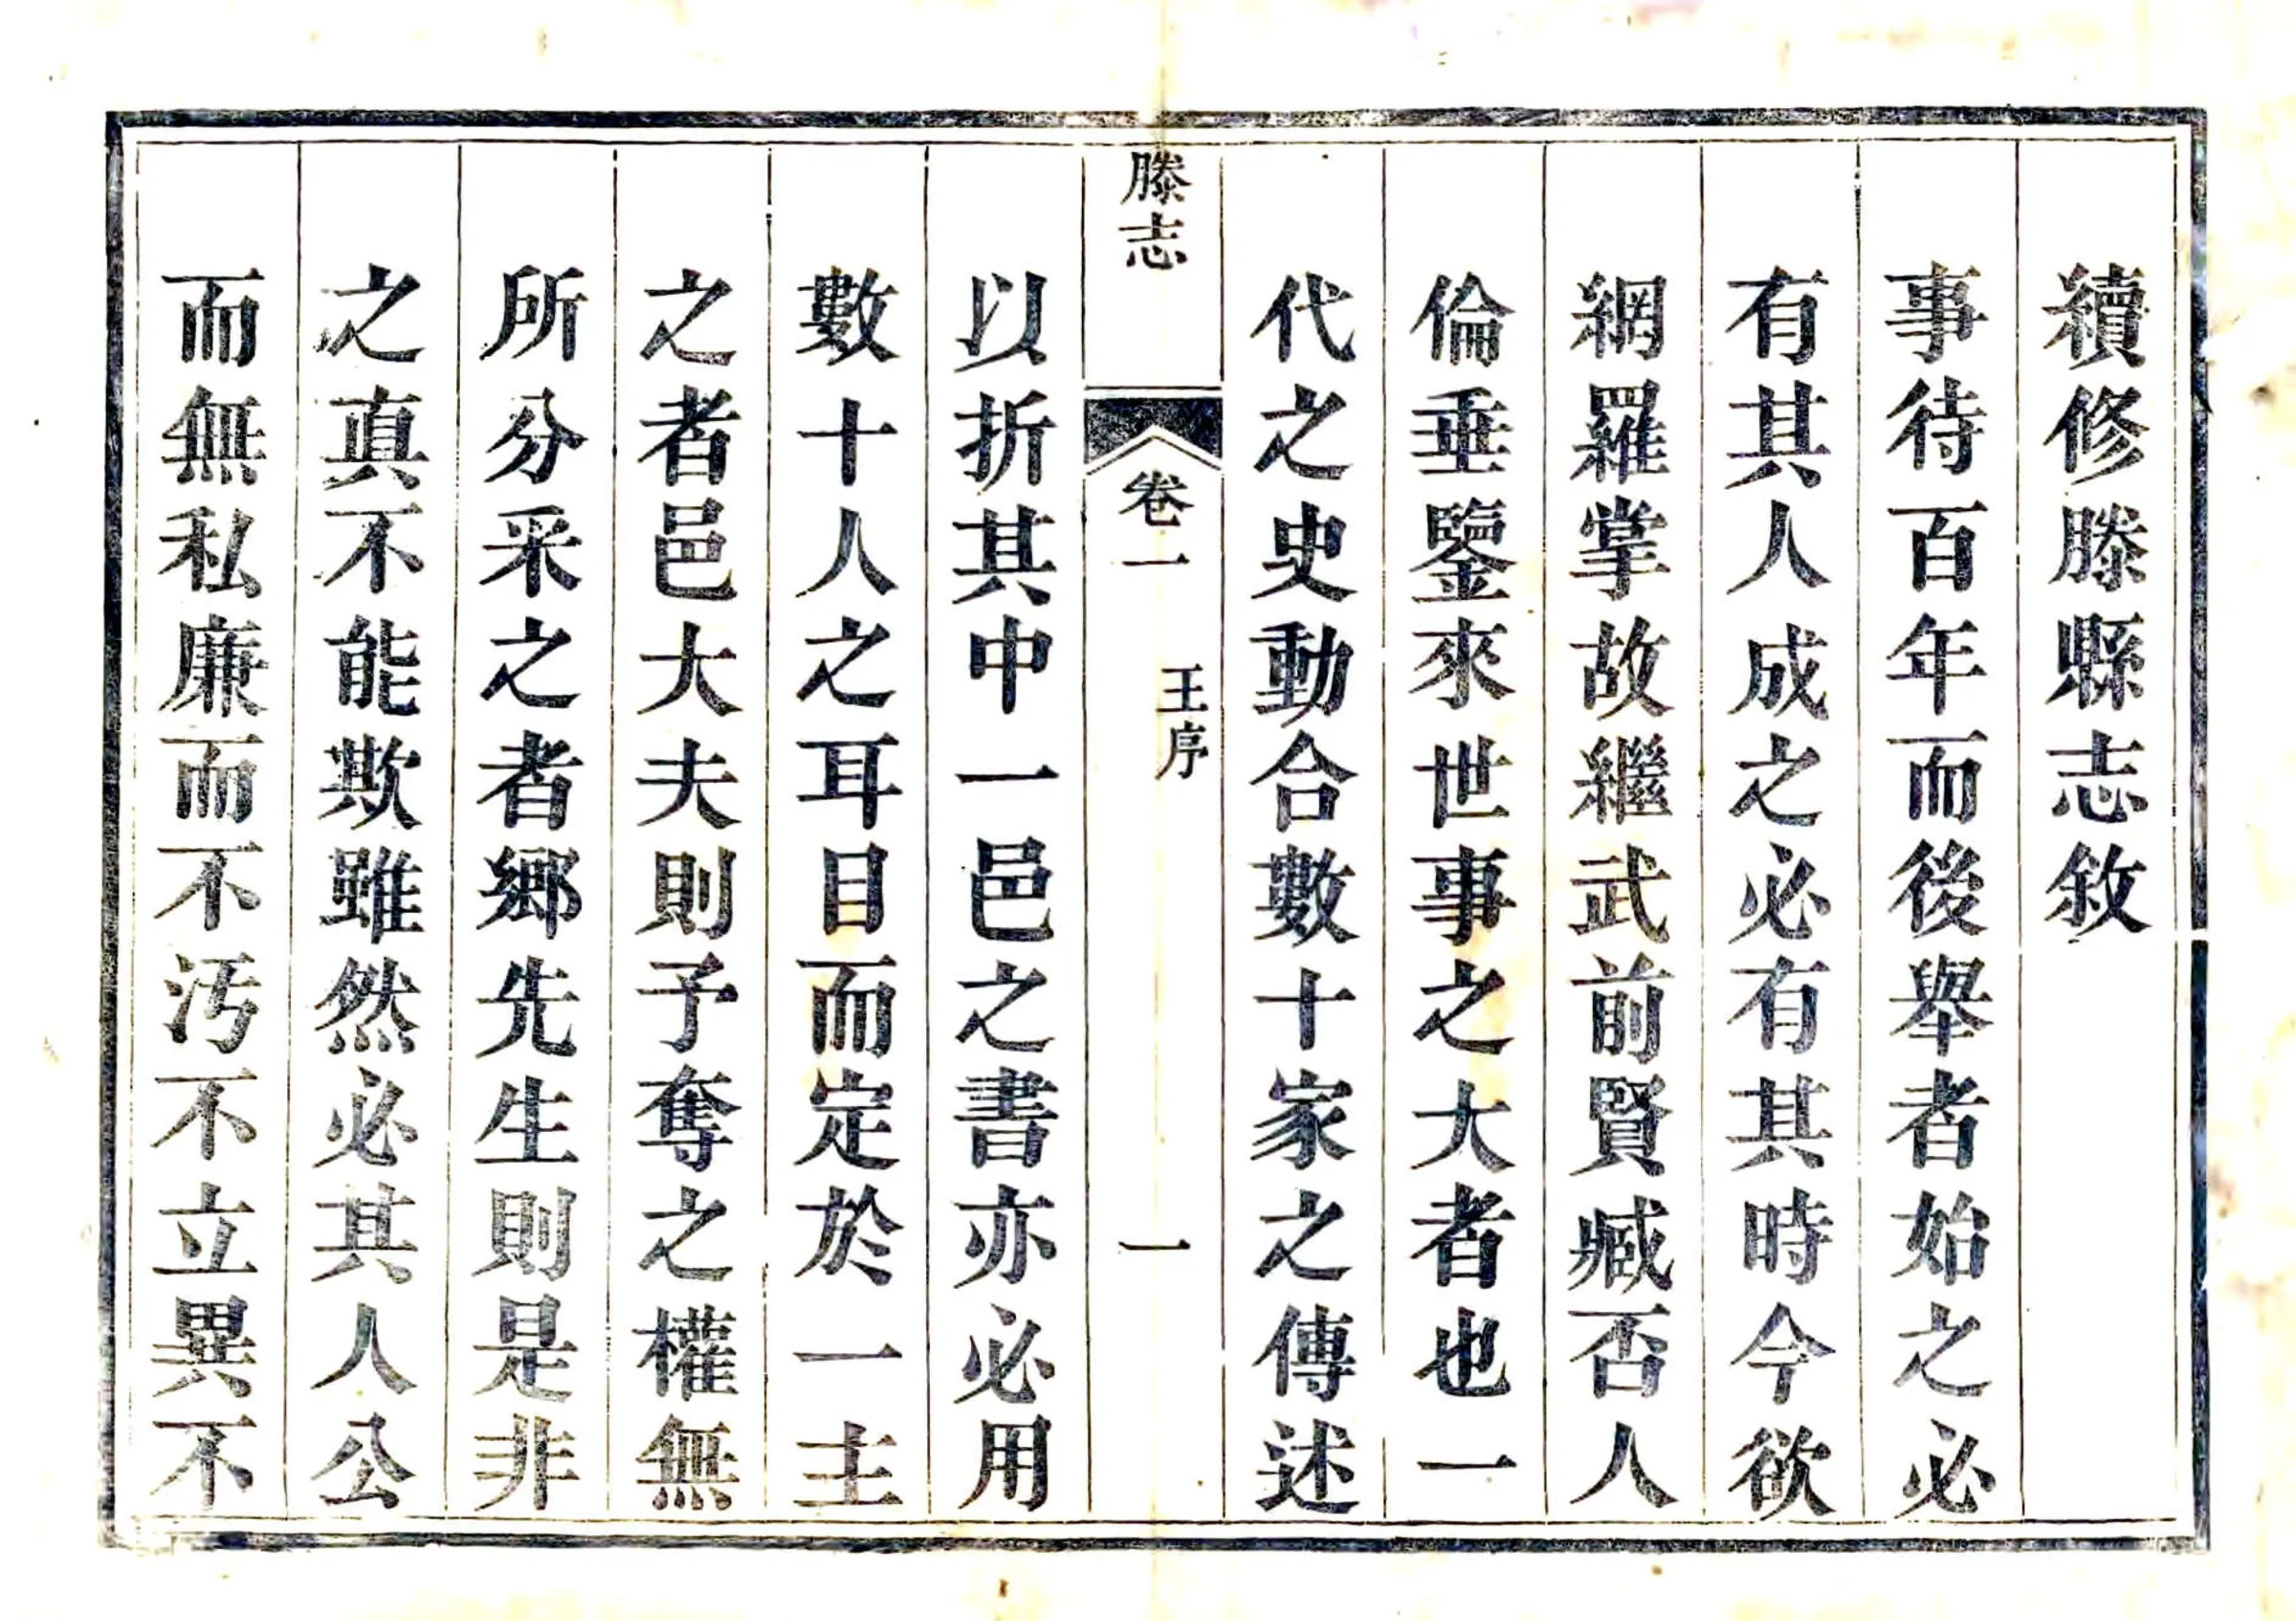 續修滕縣志敘
事待百年而後舉者始之必
有其人成之必有其時今欲
網羅掌故繼武前賢臧否人
倫垂鑒來世事之大者也一
代之史動合數十家之傳述
滕志
卷一
王序
一
以折其中一邑之書亦必用
數十人之耳目而定於一主
之者邑大夫則予奪之權無
所分采之者鄉先生則是非
之真不能欺雖然必其人公
而無私廉而不污不立異不